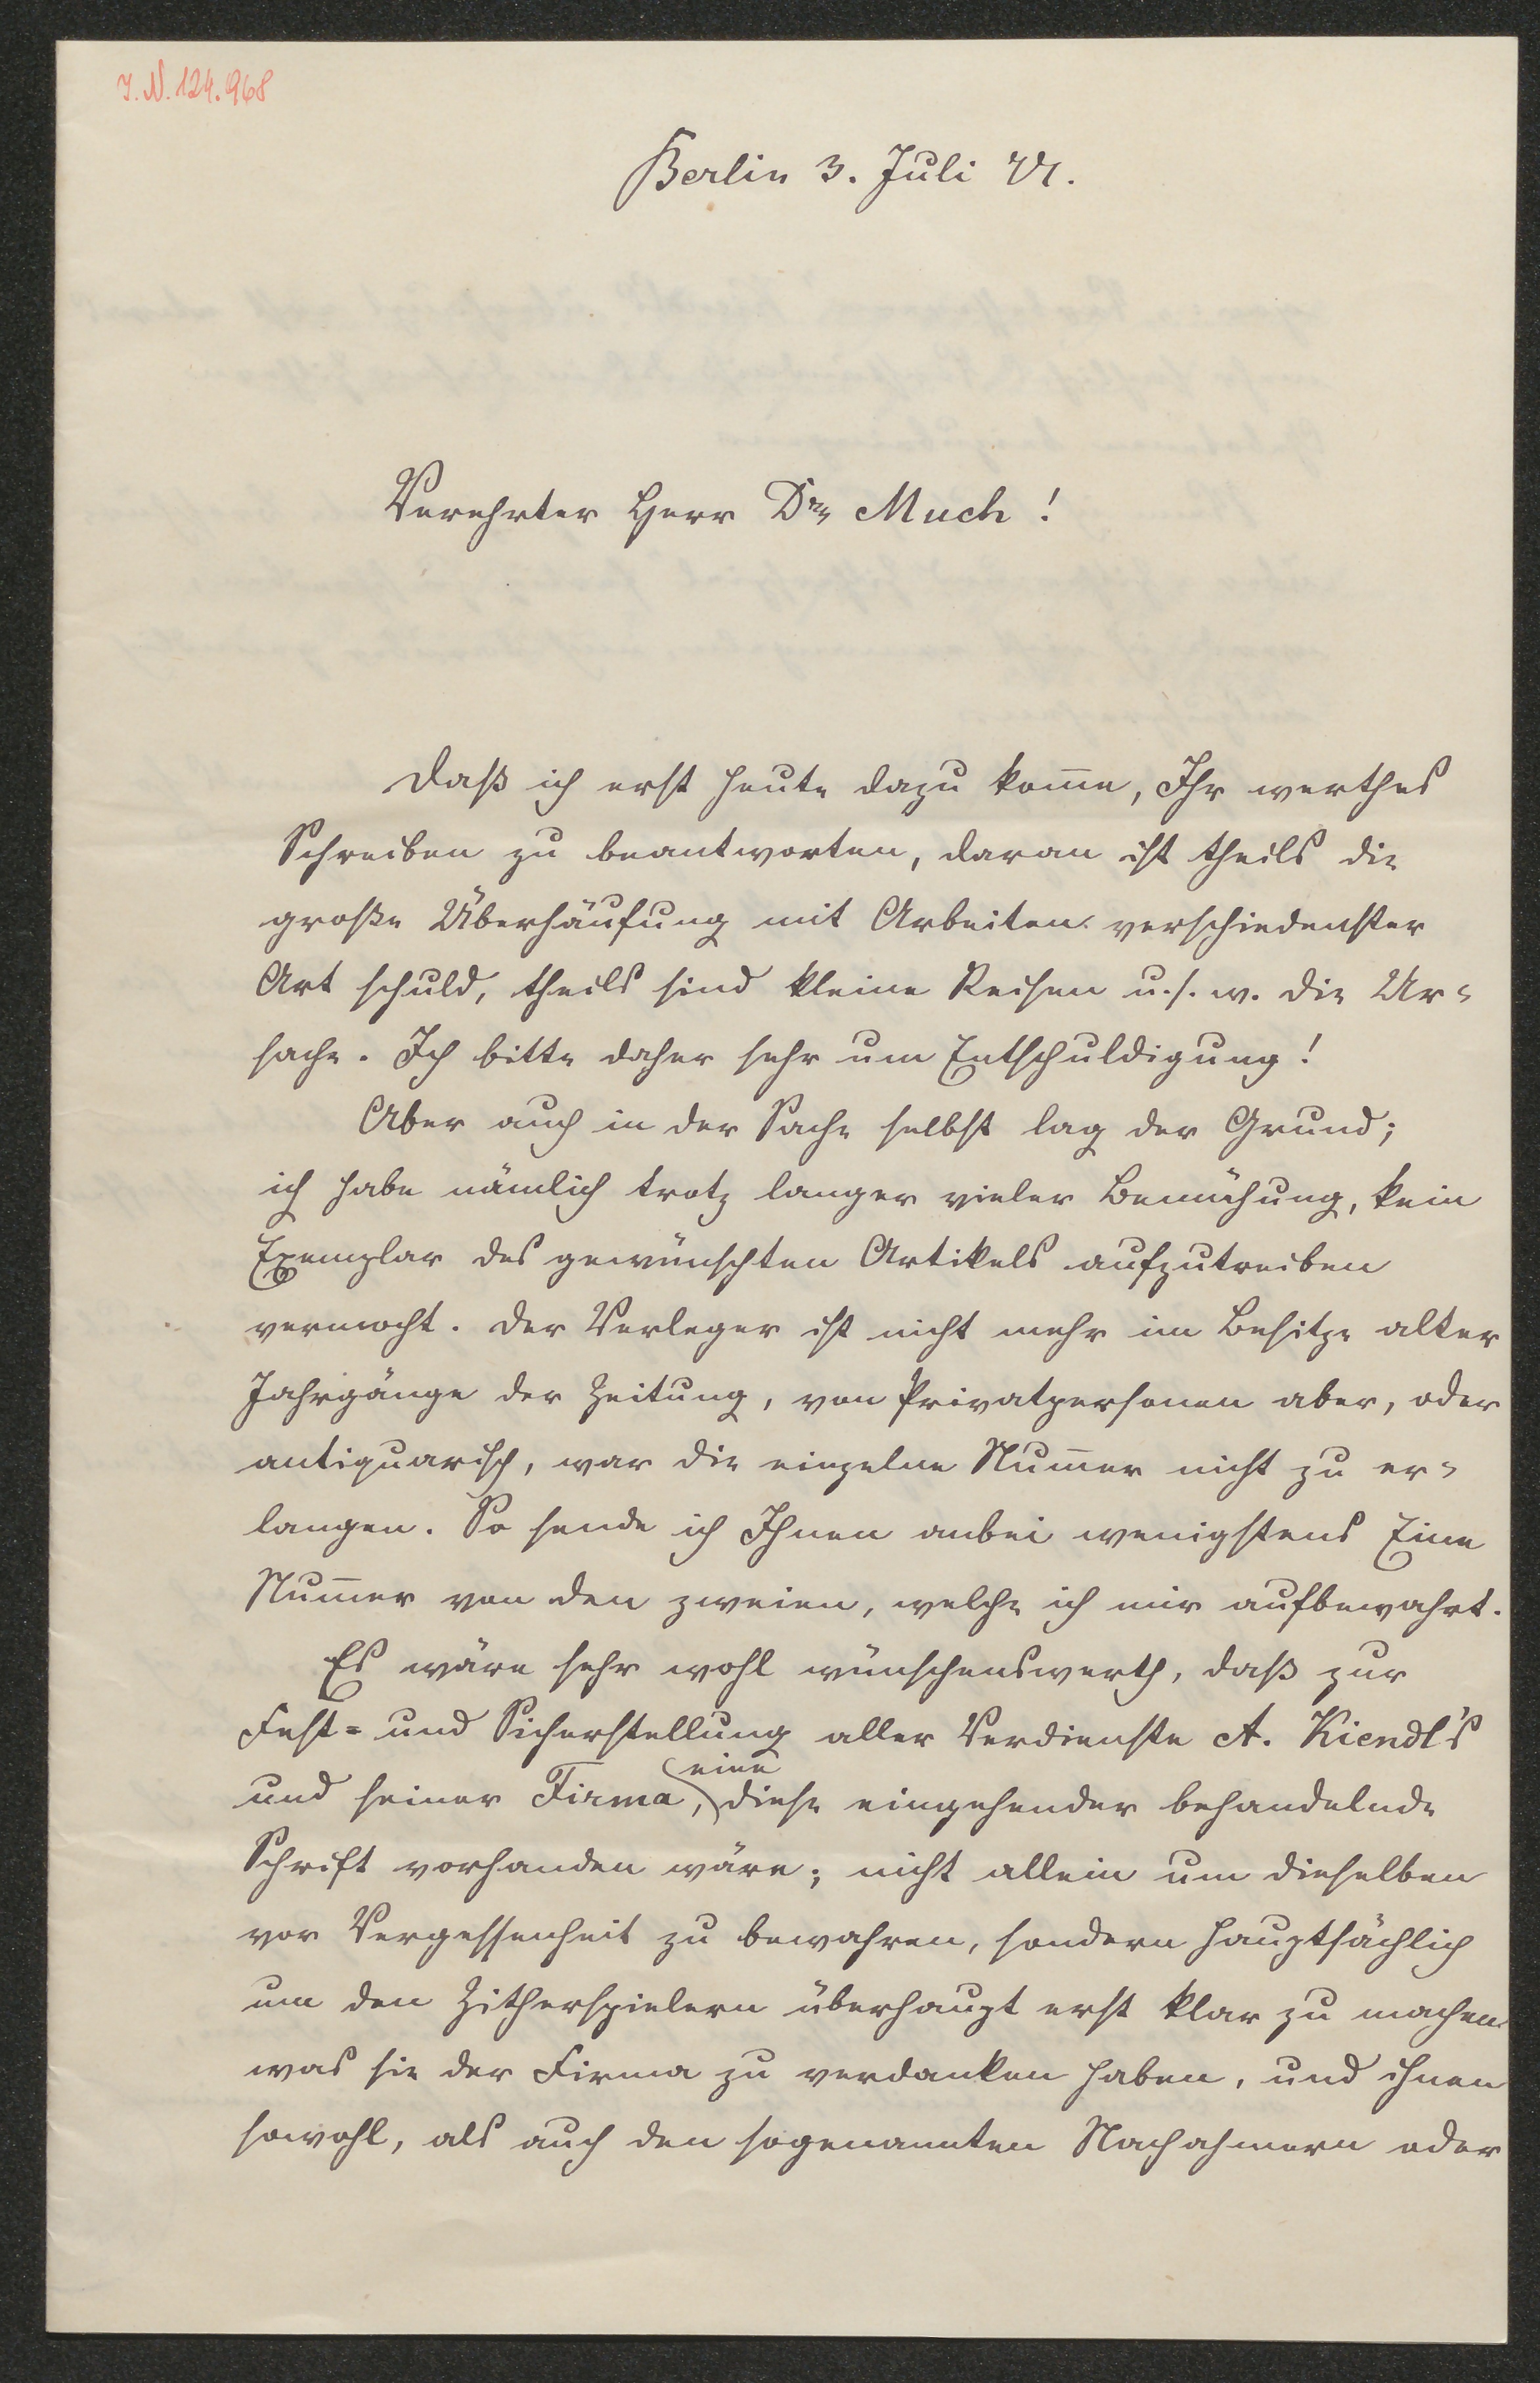 J.N. 124.968
Berlin 3. Juli 71.
Verehrter Herr Dr Much!
Daß ich erst heute dazu kom̅e, Ihr werthes
Schreiben zu beantworten, daran ist theils die
große Überhäufung mit Arbeiten verschiedenster
Art schuld, theils sind kleine Reisen u. s. w. die Ur-
sache. Ich bitte daher sehr um Entschuldigung!
Aber auch in der Sache selbst lag der Grund;
ich habe nämlich trotz langer vieler Bemühung, kein
Exemplar des gewünschten Artikels aufzutreiben
vermocht. Der Verleger ist nicht mehr im Besitze alter
Jahrgänge der Zeitung, von Privatpersonen aber, oder
antiquarisch, war die einzelne Num̅er nicht zu er-
langen. So sende ich Ihnen anbei wenigstens Eine
Num̅er von den zweien, welche ich mir aufbewahrt.
Es wäre sehr wohl wünschenswerth, daß zur
Fest- und Sicherstellung aller Verdienste A. Kiendl's
und seiner Firma, eine diese eingehender behandelnde
Schrift vorhanden wäre; nicht allein um dieselben
vor Vergessenheit zu bewahren, sondern hauptsächlich
um den Zitherspielern überhaupt erst klar zu machen
was sie der Firma zu verdanken haben, und ihnen
sowohl, als auch den sogenannten Nachahmern oder